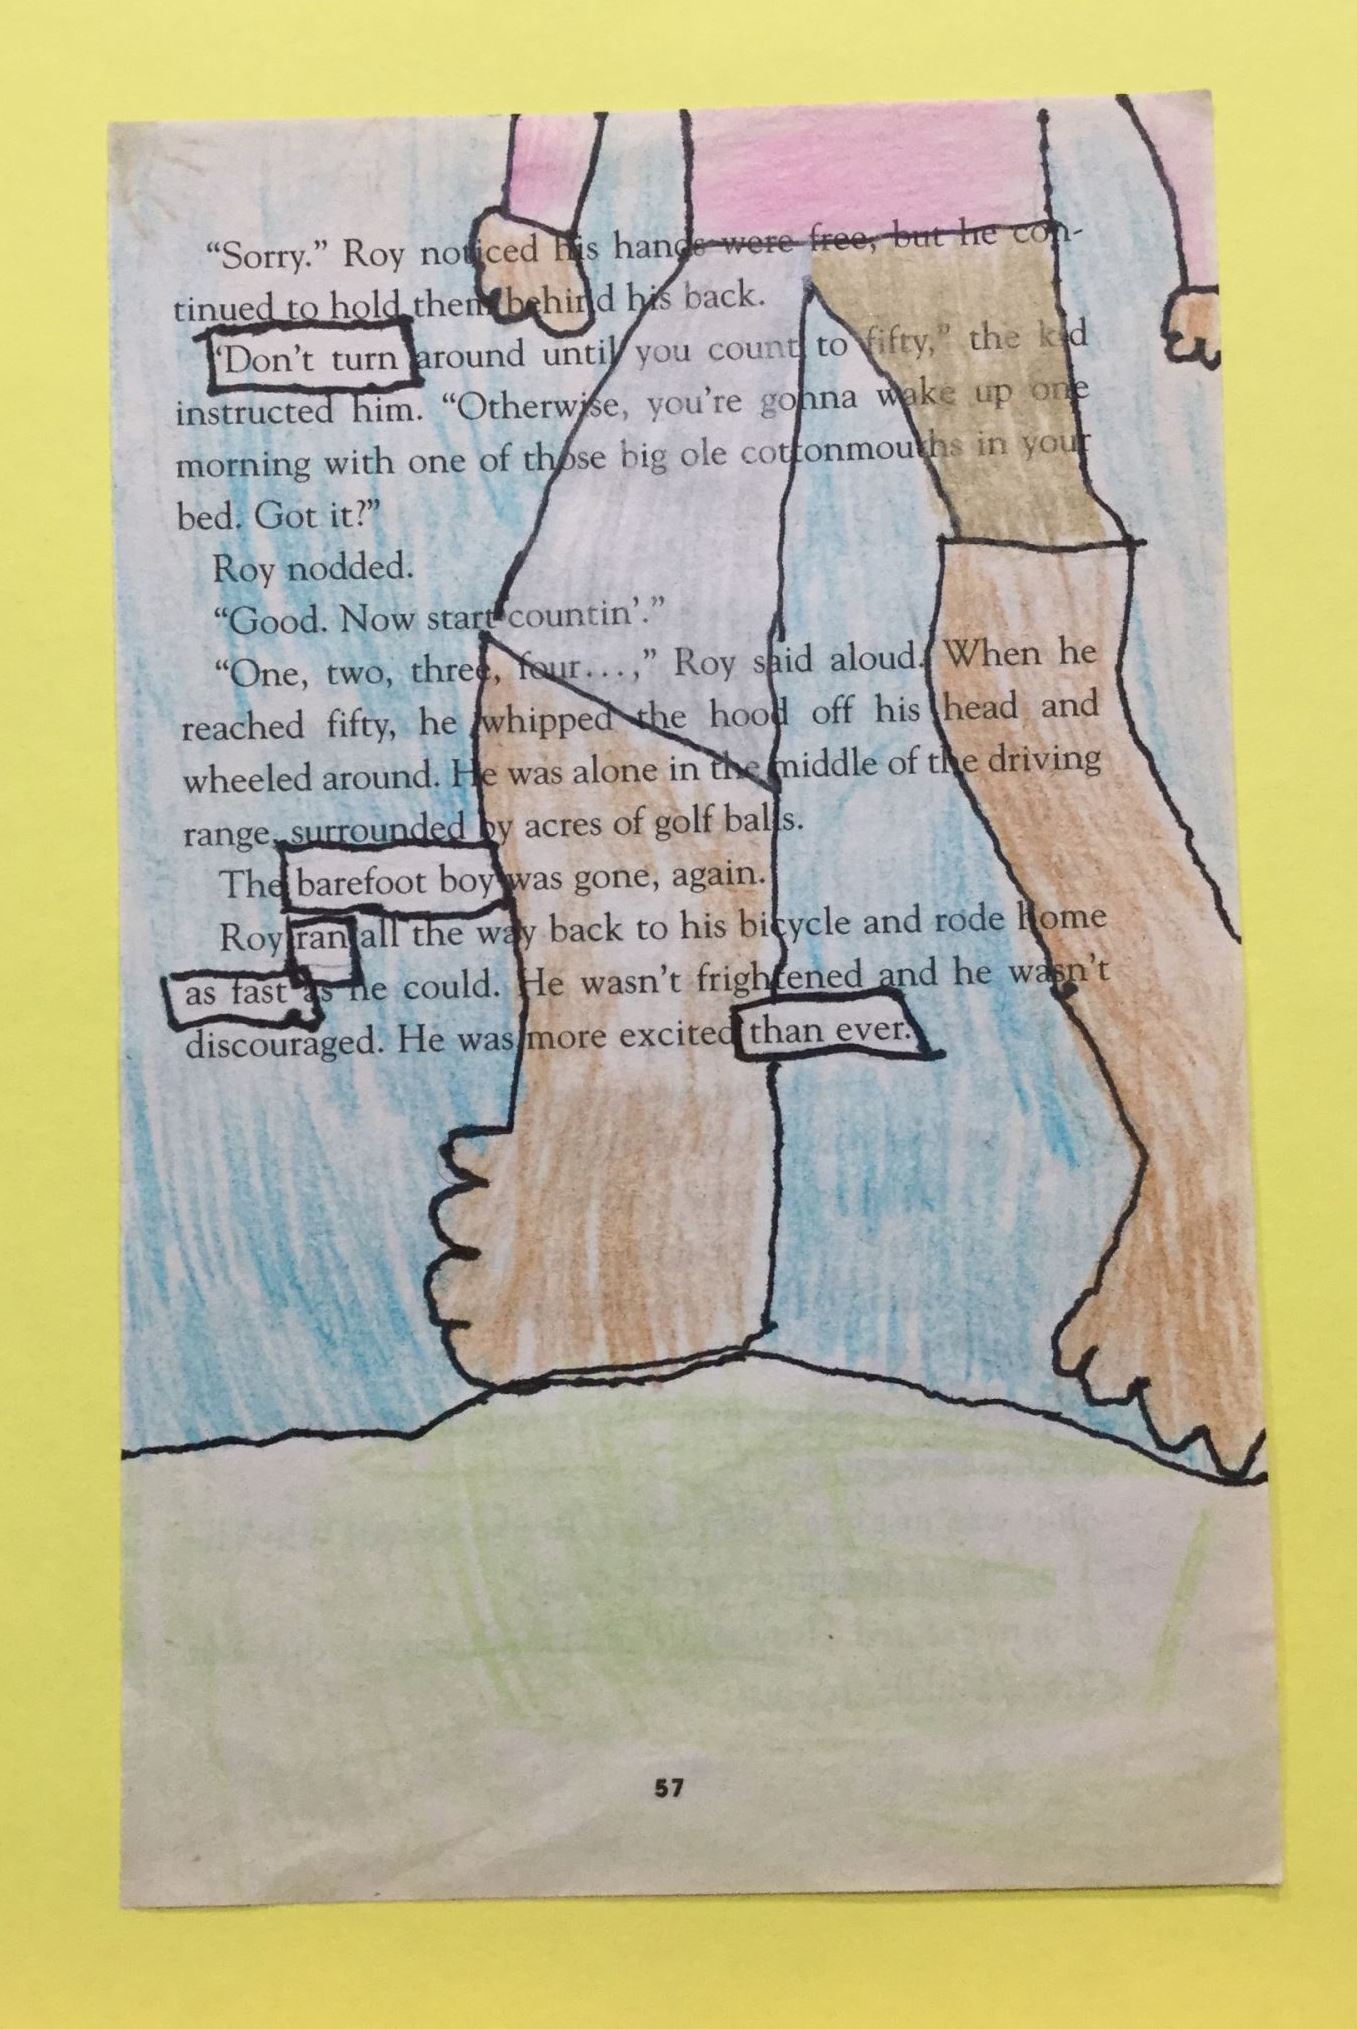 “Sorry.” Roy noticed his hands were free, but he con-
tinued to hold them behind his back.
“Don't turn around until you count to fifty,” the kid
instructed him. “Otherwise, you're gonna wake up one
morning with one of those big ole cottonmouths in your
bed. Got it?”
Roy nodded.
“Good. Now start countin'.”
“One, two, three, four . . . ,” Roy said aloud. When he
reached fifty, he whipped the hood off his head and
wheeled around. He was alone in the middle of the driving
range, surrounded by acres of golf balls.
The barefoot boy was gone, again.
Roy ran all the way back to his bicycle and rode home
as fast as he could. He wasn't frightened and he wasn't
discouraged. He was more excited than ever.
57